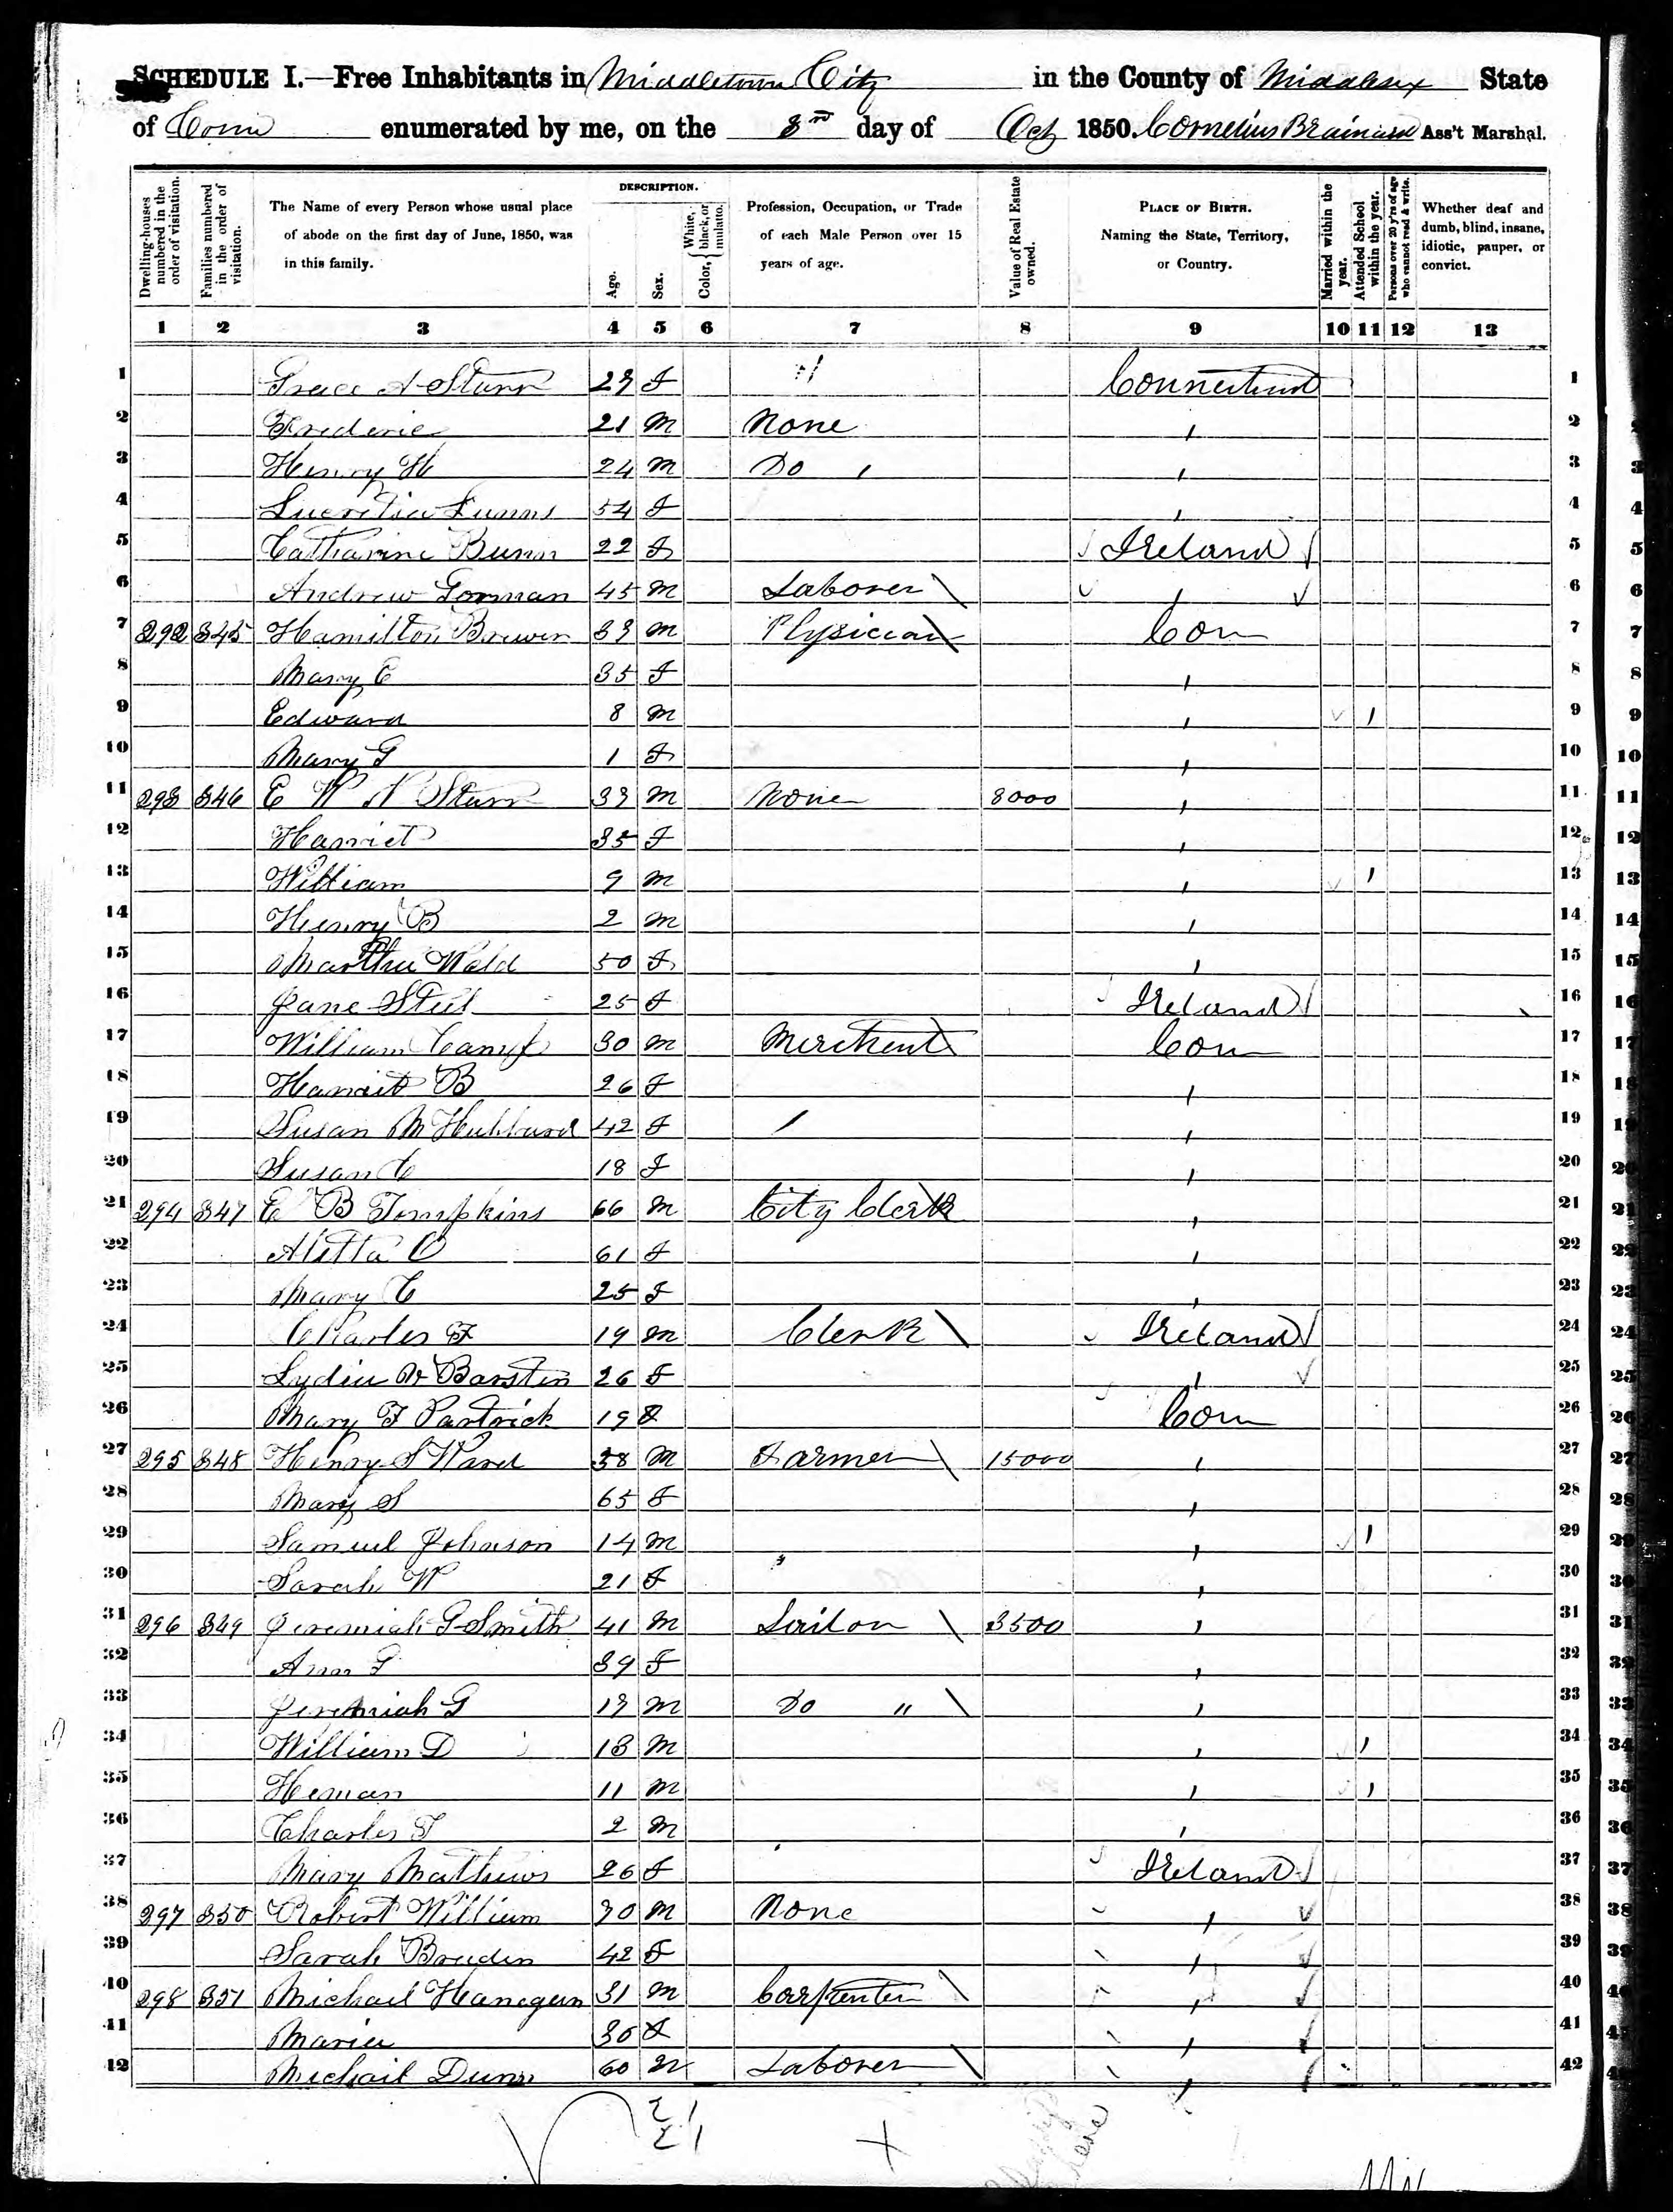 SCHEDULE I.—Free Inhabitants in Middletown City in the County of Middlesex State
of Conn enumerated by me, on the 3rd day of Oct 1850. Cornelius Brainard Ass't Marshal.
Dwelling-houses numbered in the order of visitation.
Families numbered in the order of visitation.
The Name of every Person whose usual place of abode on the first day of June, 1850, was in this family.
DESCRIPTION.
Age.
Sex.
Color, { White, black, or mulatto.
Profession, Occupation, or Trade of each Male Person over 15 years of age.
Value of Real Estate owned.
PLACE OF BIRTH. Naming the State, Territory, or Country.
Married within the year.
Attended School within the year.
Persons over 20 y'rs of age who cannot read & write.
Whether deaf and dumb, blind, insane, idiotic, pauper, or convict.
1 2 3 4 5 6 7 8 9 10 11 12 13
1 Grace A Starr 23 F Connecticut 1
2 Frederic 21 M None " 2
3 Henry H 24 M Do " " 3
4 Lucretia 54 F " 4
5 Catharine Bunn 22 F Ireland 5
6 Andrew Gorman 45 M Laborer " 6
7 292 345 Hamilton Brewer 33 M Physician Con 7
8 Mary E 35 F " 8
9 Edward 8 M " 1 9
10 Mary G 1 F " 10
11 293 346 E W N Starr 33 M None 8000 " 11
12 Harriet 35 F " 12
13 William 9 M " 1 13
14 Henry B 2 M " 14
15 Martha Wald 50 F " 15
16 Jane Steel 25 F Ireland 16
17 William 30 M Merchent Con 17
18 Harriet B 26 F " 18
19 Susan M Hubbard 42 F " 19
20 Susan C 18 F " 20
21 294 347 E B Tompkins 66 M City Clerk " 21
22 Aletta O 61 F " 22
23 Mary C 25 F " 23
24 Charles F 19 M Clerk Ireland 24
25 Lydia W 26 F " 25
26 Mary F Partrick 19 F Con 26
27 295 348 Henry S Ward 38 M Farmer 15000 " 27
28 Mary S 65 F " 28
29 Samuel Johnson 14 M " 1 29
30 Sarah W 21 F " 30
31 296 349 Jeremiah G Smith 41 M Sailor 3500 " 31
32 Ann G 39 F " 32
33 Jeremiah G 19 M Do " " 33
34 William D 13 M " 1 34
35 Heman 11 M " 1 35
36 Charles T 2 M " 36
37 Mary Mathews 26 F Ireland 37
38 297 350 Robert William 30 M None " 38
39 Sarah 42 F " 39
40 298 351 Michael Hanegan 31 M Carpenter " 40
41 Maria 30 F " 41
42 Michail Dunn 60 M Laborer " 42